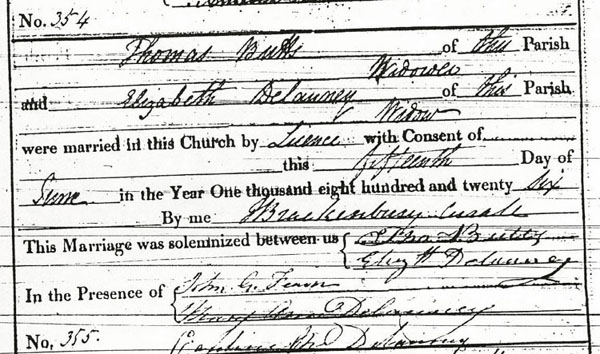 No. 354
Thomas Butts of this Parish
Widower
and Elizabeth Delauney of this Parish
Widow
were married in this Church by Licence with Consent of
this fifteenth Day of
June in the Year One thousand eight hundred and twenty six
By me Brackenbury Curate
This Marriage was solemnized between us { Thos Butts
Elizth Delauney
In the Presence of { John G.
Mary Ann Delauney
No. 355. Caroline Delauney